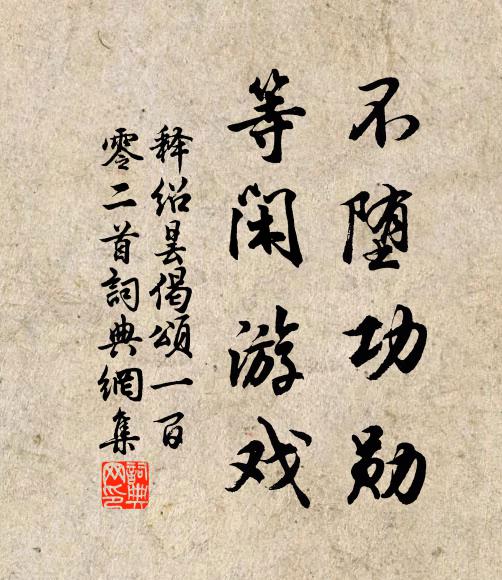 不堕功勋
等闲游戏
释绍昙偈頌一百
零二首詞典網集
詞典
网印